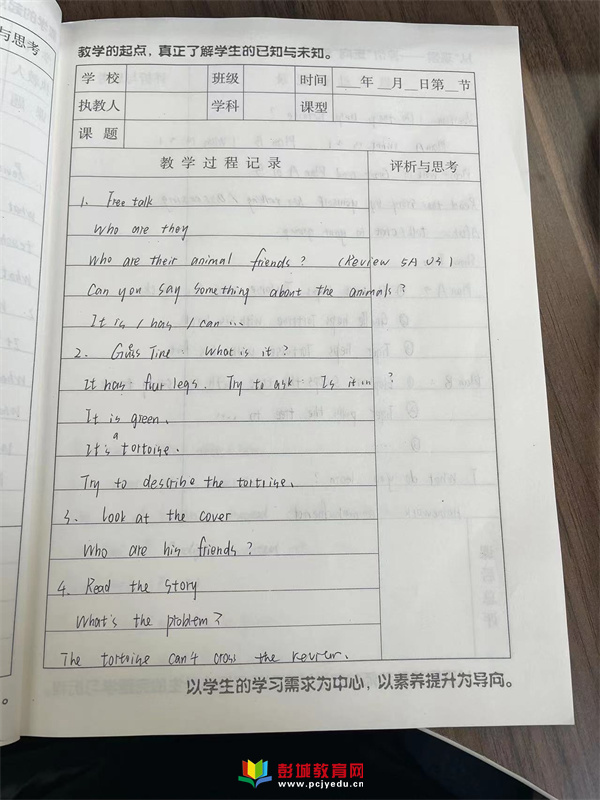 与思考
教学的起点，真正了解学生的已知与未知。
学 校 班级 时间 ___年 __月__日第__节
执教人 学科 课型
课 题
教 学 过 程 记 录 评析与思考
1. Free talk
Who are they
Who are their animal friends? (Review 5A U3)
Can you say something about the animals?
It is / has / can ...
2. Guess Time What is it?
It has four legs. Try to ask Is it ... ?
It is green.
It's a tortoise.
Try to describe the tortoise.
3. Look at the cover
Who are his friends?
4. Read the story
What's the problem?
The tortoise can't cross the
以学生的学习需求为中心，以素养提升为导向。
彭城教育网
www.pcjyedu.cn